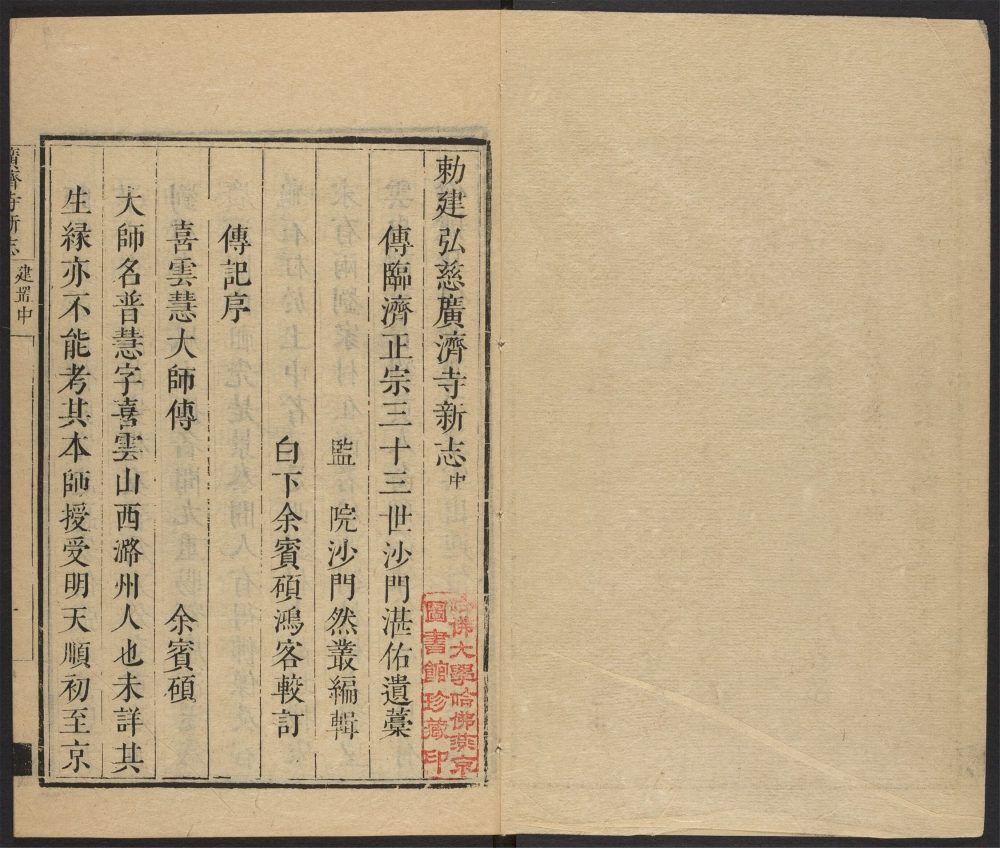 勅建弘慈廣濟寺新志中
傳臨濟正宗三十三世沙門湛佑遺藁
監院沙門然叢編輯
白下余賓碩鴻客較訂
傳記序
喜雲慧大師傳 余賓碩
大師名普慧字喜雲山西潞州人也未詳其
生緣亦不能考其本師授受明天順初至京
廣濟寺新志
建置中
一
哈佛大學哈佛燕京
圖書館珍藏印